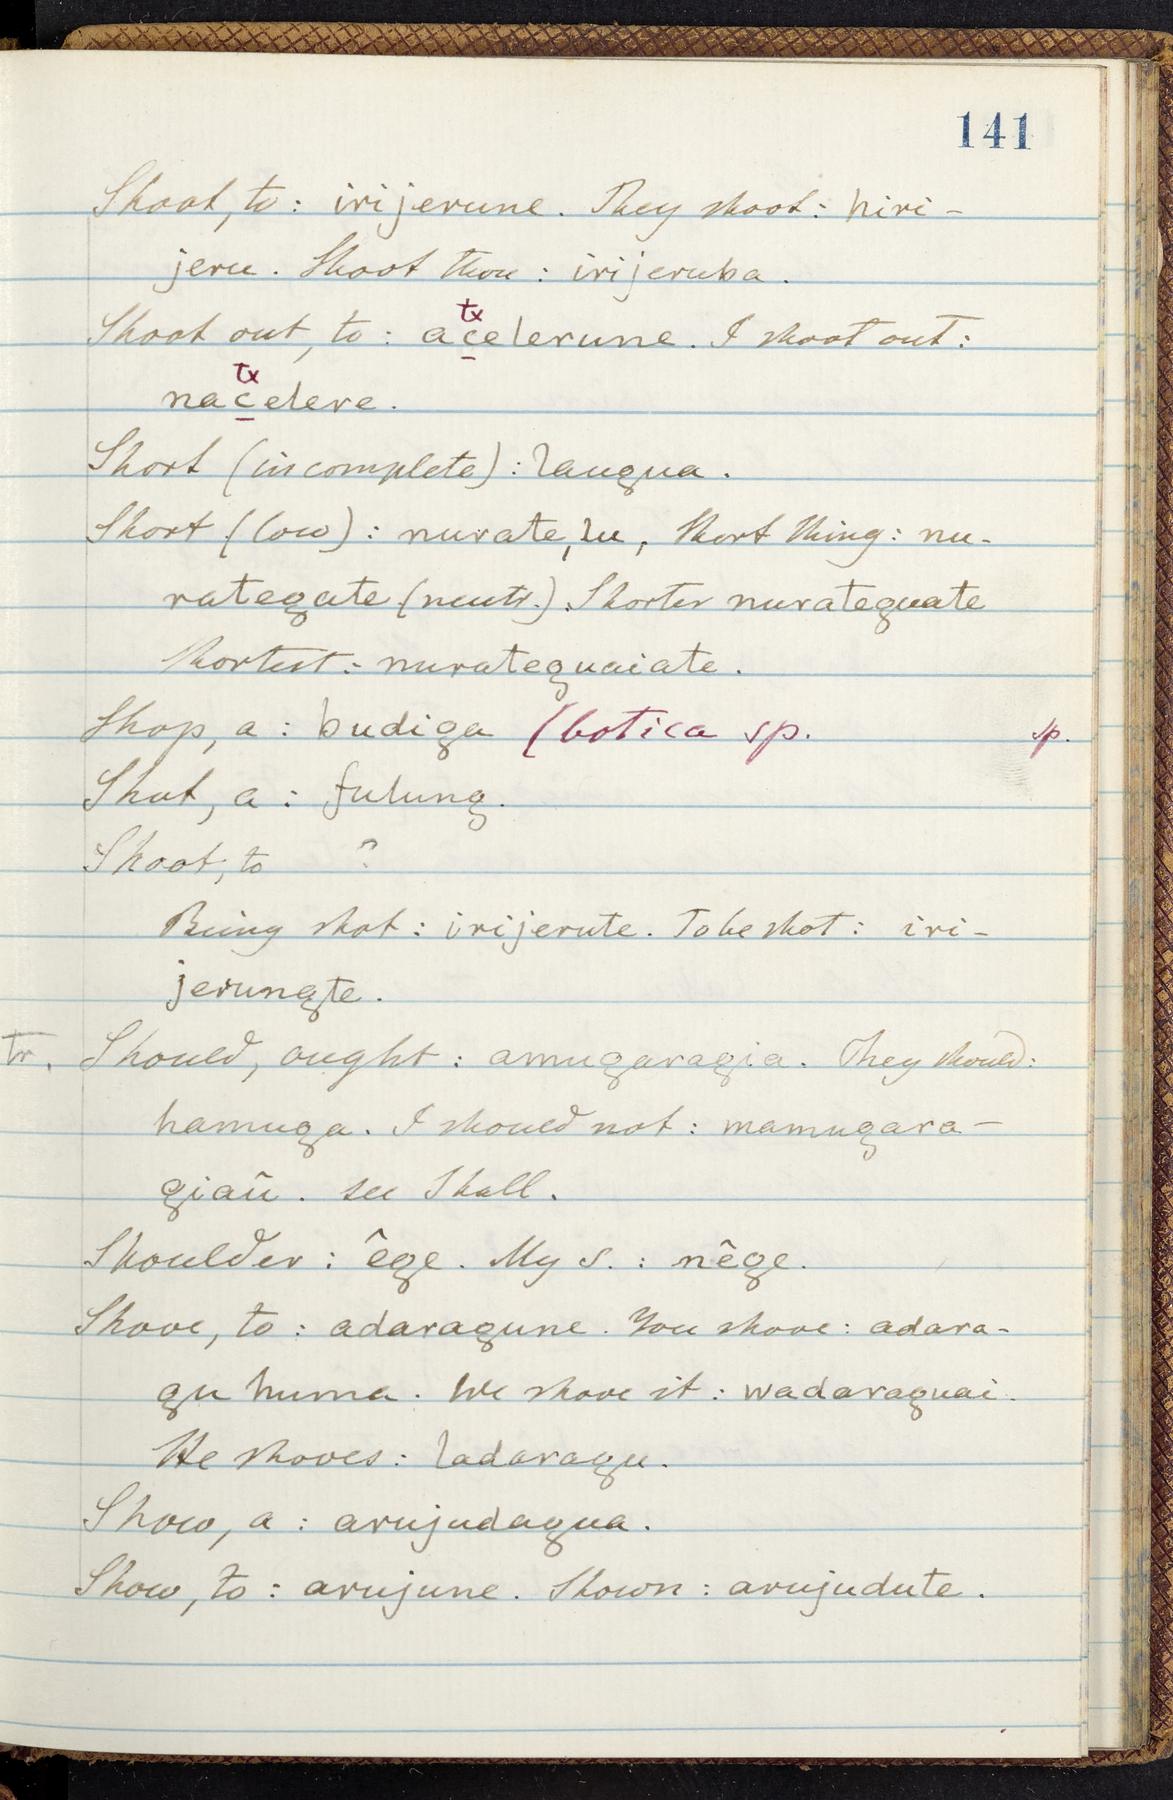 141
Shoot, to: irijerune. They shoot: hiri-
jeru. Shoot thou: irijeruba.
tx
Shoot out, to: acelerune. I shoot out:
tx
nacelere.
Short (incomplete): laugua.
Short (low): nurate, lu, Short thing: nu-
rategate (neutr.). Shorter nurateguate
Shortest: nurateguaiate.
Shop, a: budiga (botica sp. sp.
Shot, a: fulung.
Shoot, to ?
Being shot: irijerute. To be shot: iri-
jerungte.
tr. Should, ought: amugaragia. They should:
hamuga. I should not: mamugara-
giañ. see Shall.
Shoulder: êge. My s.: nêge.
Shove, to: adaragune. You shove: adara-
gu huma. We shove it: wadaraguai.
He shoves: ladaragu.
Show, a: arujudagua.
Show, to: arujune. Shown: arujudute.